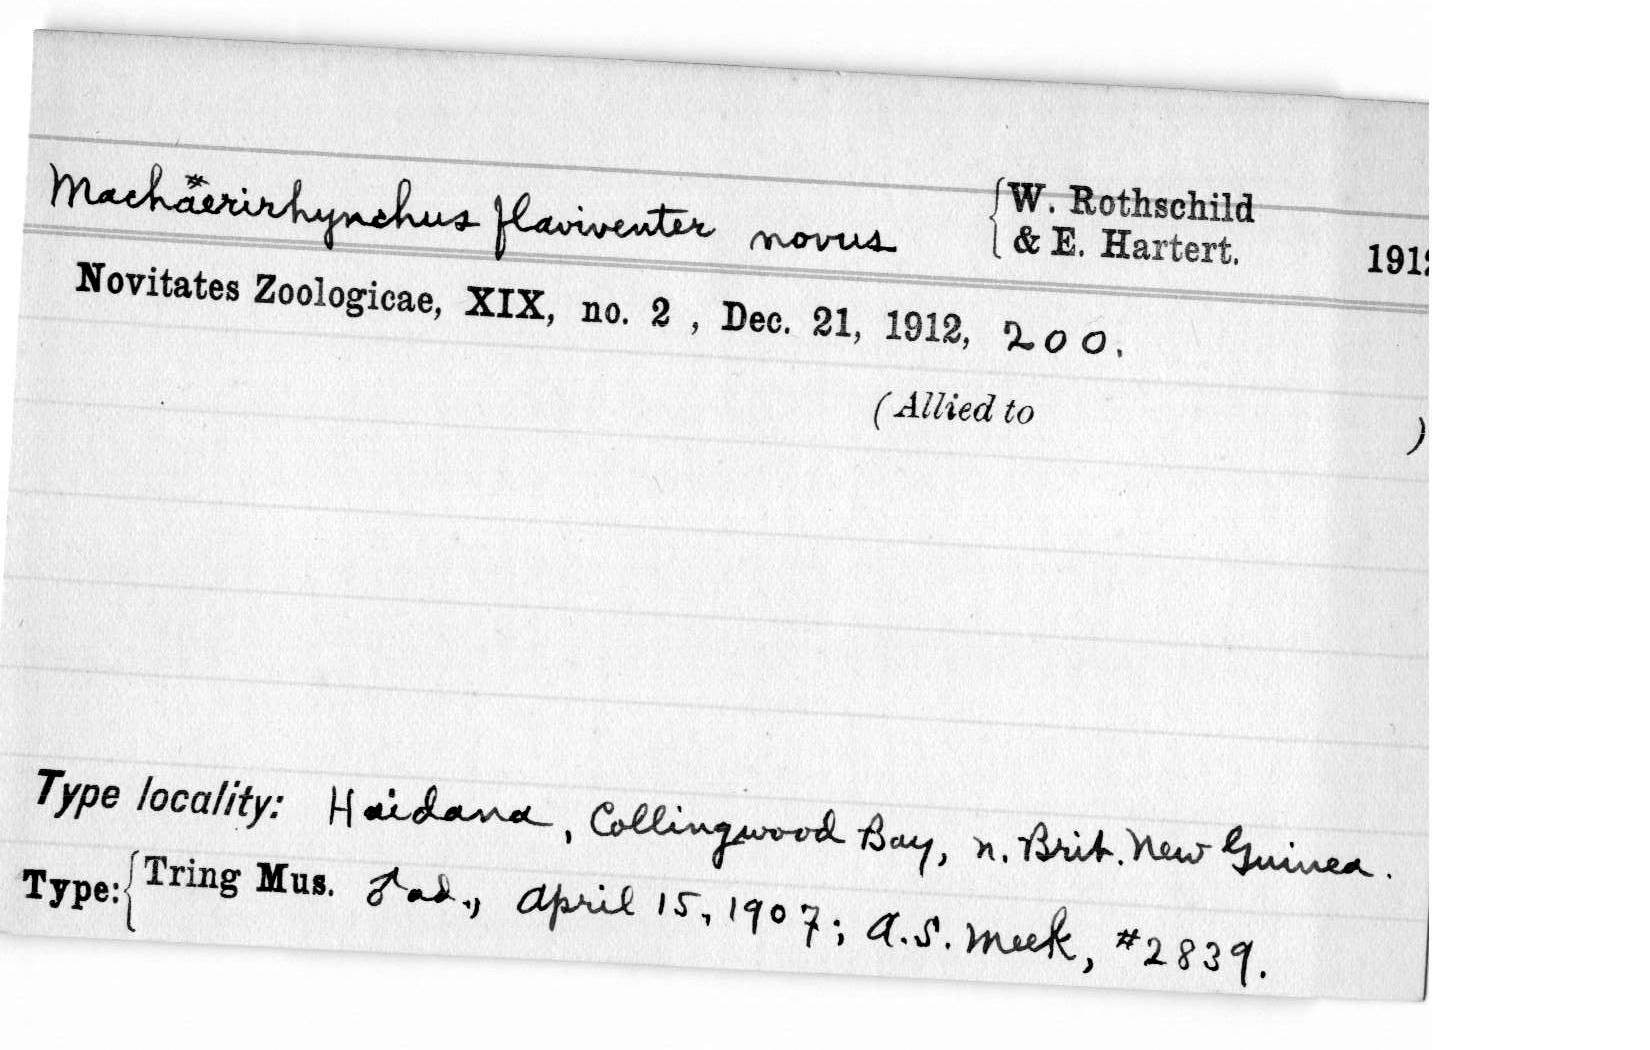 Machaerirhynchus flaviventer novus {W. Rothschild & E. Hartert. 1912
Novitates Zoologicae, XIX, no. 2 , Dec. 21, 1912, 200.
(Allied to )
Type locality: Haidana, Collingwood Bay, n. Brit. New Guinea.
Type: {Tring Mus. ♂ ad., April 15, 1907; A.S. Meek, #2839.